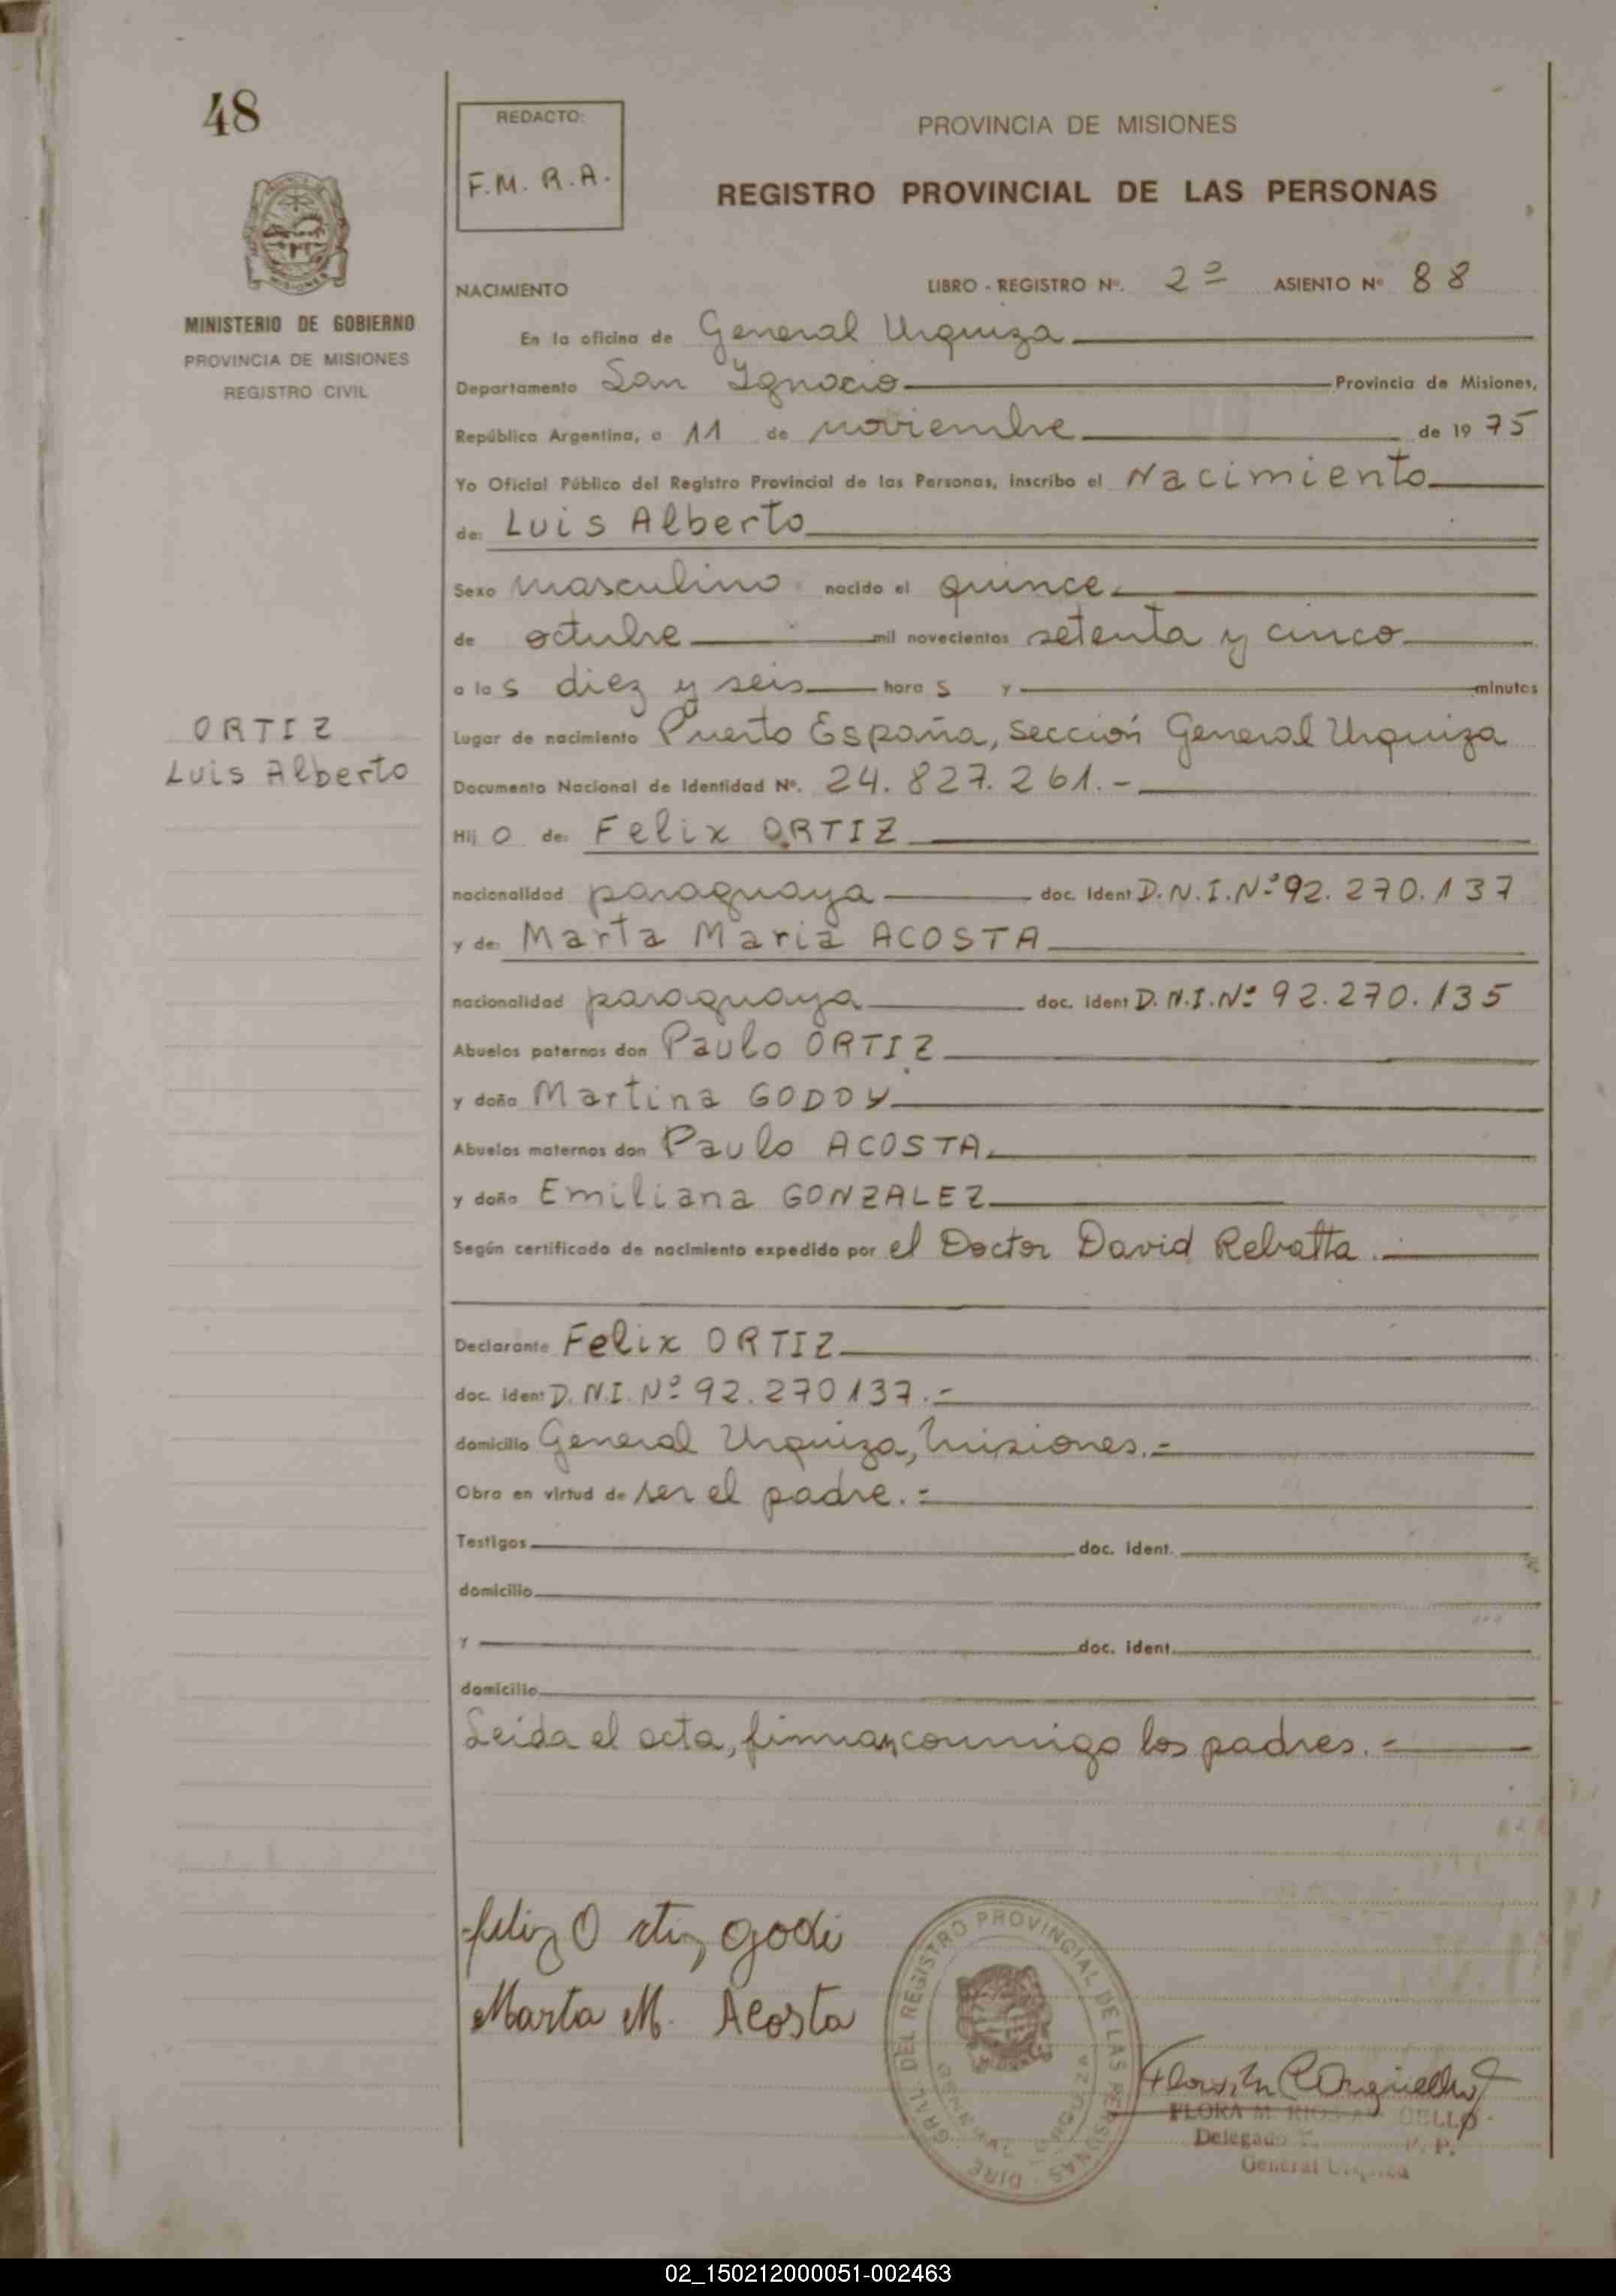 48
REDACTO:
F.M. R.A.
PROVINCIA DE MISIONES
REGISTRO PROVINCIAL DE LAS PERSONAS
MISIONES
MINISTERIO DE GOBIERNO
PROVINCIA DE MISIONES
REGISTRO CIVIL
NACIMIENTO LIBRO - REGISTRO Nº. 2º ASIENTO Nº 88
En la oficina de General Urquiza
Departamento San Ignacio Provincia de Misiones,
República Argentina, a 11 de noviembre de 1975
Yo Oficial Público del Registro Provincial de las Personas, inscribo el Nacimiento
de: Luis Alberto
Sexo masculino nacido el quince
de octubre mil novecientos setenta y cinco
a las diez y seis horas y minutos
ORTIZ
Luis Alberto
Lugar de nacimiento Puerto España, Sección General Urquiza
Documento Nacional de Identidad Nº. 24.827.261.-
Hijo de: Felix ORTIZ
nacionalidad paraguaya doc. Ident D.N.I.Nº 92.270.137
y de: Marta Maria ACOSTA
nacionalidad paraguaya doc. Ident D.N.I.Nº 92.270.135
Abuelos paternos don Paulo ORTIZ
y doña Martina GODOY
Abuelos maternos don Paulo ACOSTA
y doña Emiliana GONZALEZ
Según certificado de nacimiento expedido por el Doctor David Rebatta.
Declarante Felix ORTIZ
doc. ident D.N.I. Nº 92.270137.-
domicilio General Urquiza, Misiones.-
Obra en virtud de ser el padre.-
Testigos doc. ident.
domicilio
y doc. ident.
domicilio
Leida el acta, firman conmigo los padres.-
feliz Ortiz godi
Marta M. Acosta
DIRE GRAL. DEL REGISTRO PROVINCIAL DE LAS PERSONAS
GENERAL URQUIZA
FLORA M. RIOS
Delegado
General Urquiza
02_150212000051-002463